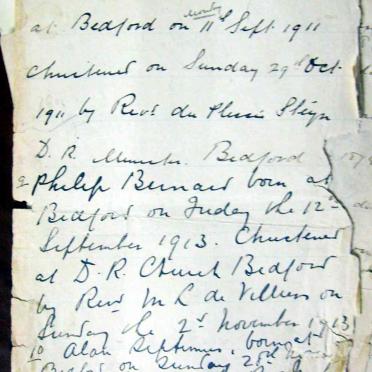 Monday
at Bedford on 11th Sept 1911
Christened on Sunday 29th Oct.
1911 by Revd du Plessis Steyn
D. R. Minister. Bedford
9 Philip Bernard born at
Bedford on Friday the 12th
September 1913. Christened
at D. R. Church Bedford
by Revd M L de Villiers on
Sunday the 2nd November 1913
10 Alan Septimus, born at
Bedford on Sunday